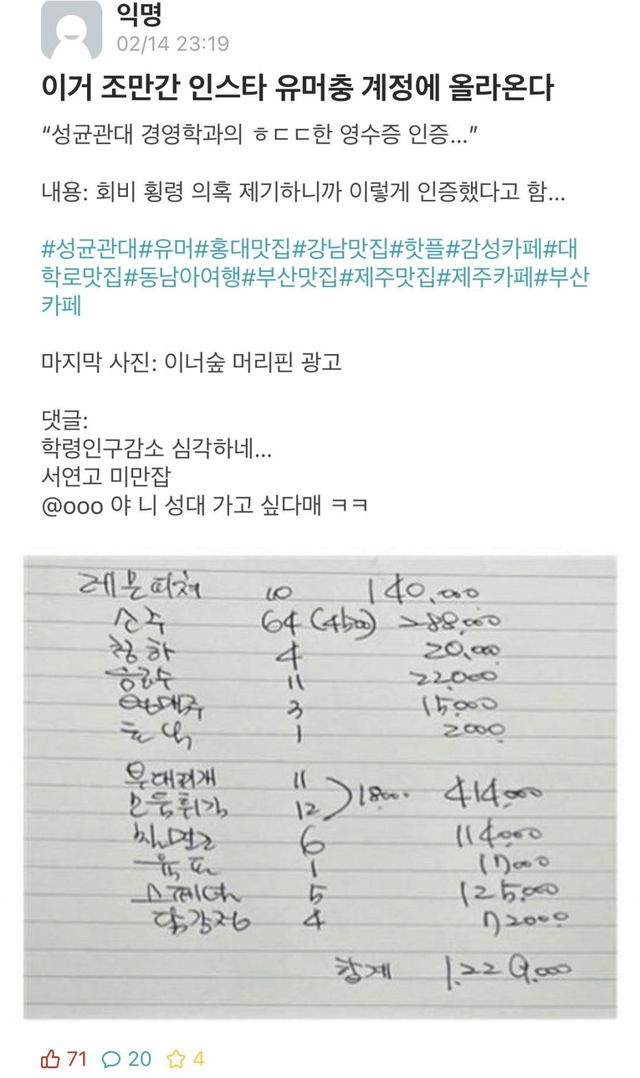 익명
02/14 23:19
이거 조만간 인스타 유머충 계정에 올라온다
“성균관대 경영학과의 ㅎㄷㄷ한 영수증 인증...”
내용: 회비 횡령 의혹 제기하니까 이렇게 인증했다고 함...
#성균관대#유머#홍대맛집#강남맛집#핫플#감성카페#대
학로맛집#동남아여행#부산맛집#제주맛집#제주카페#부산
카페
마지막 사진: 이너숲 머리핀 광고
댓글:
학령인구감소 심각하네...
서연고 미만잡
@ooo 야 니 성대 가고 싶다매 ㅋㅋ
레몬피쳐 10 140,000
소주 64 (4500) 288,000
청하 4 20,000
음료수 11 22,000
3 15,000
1 2000
부대찌개 11
모듬튀김 12 18000 414,000
6 114,000
육포 1 17000
5 125,000
4 72000
합계 1.229,000
71 20 4